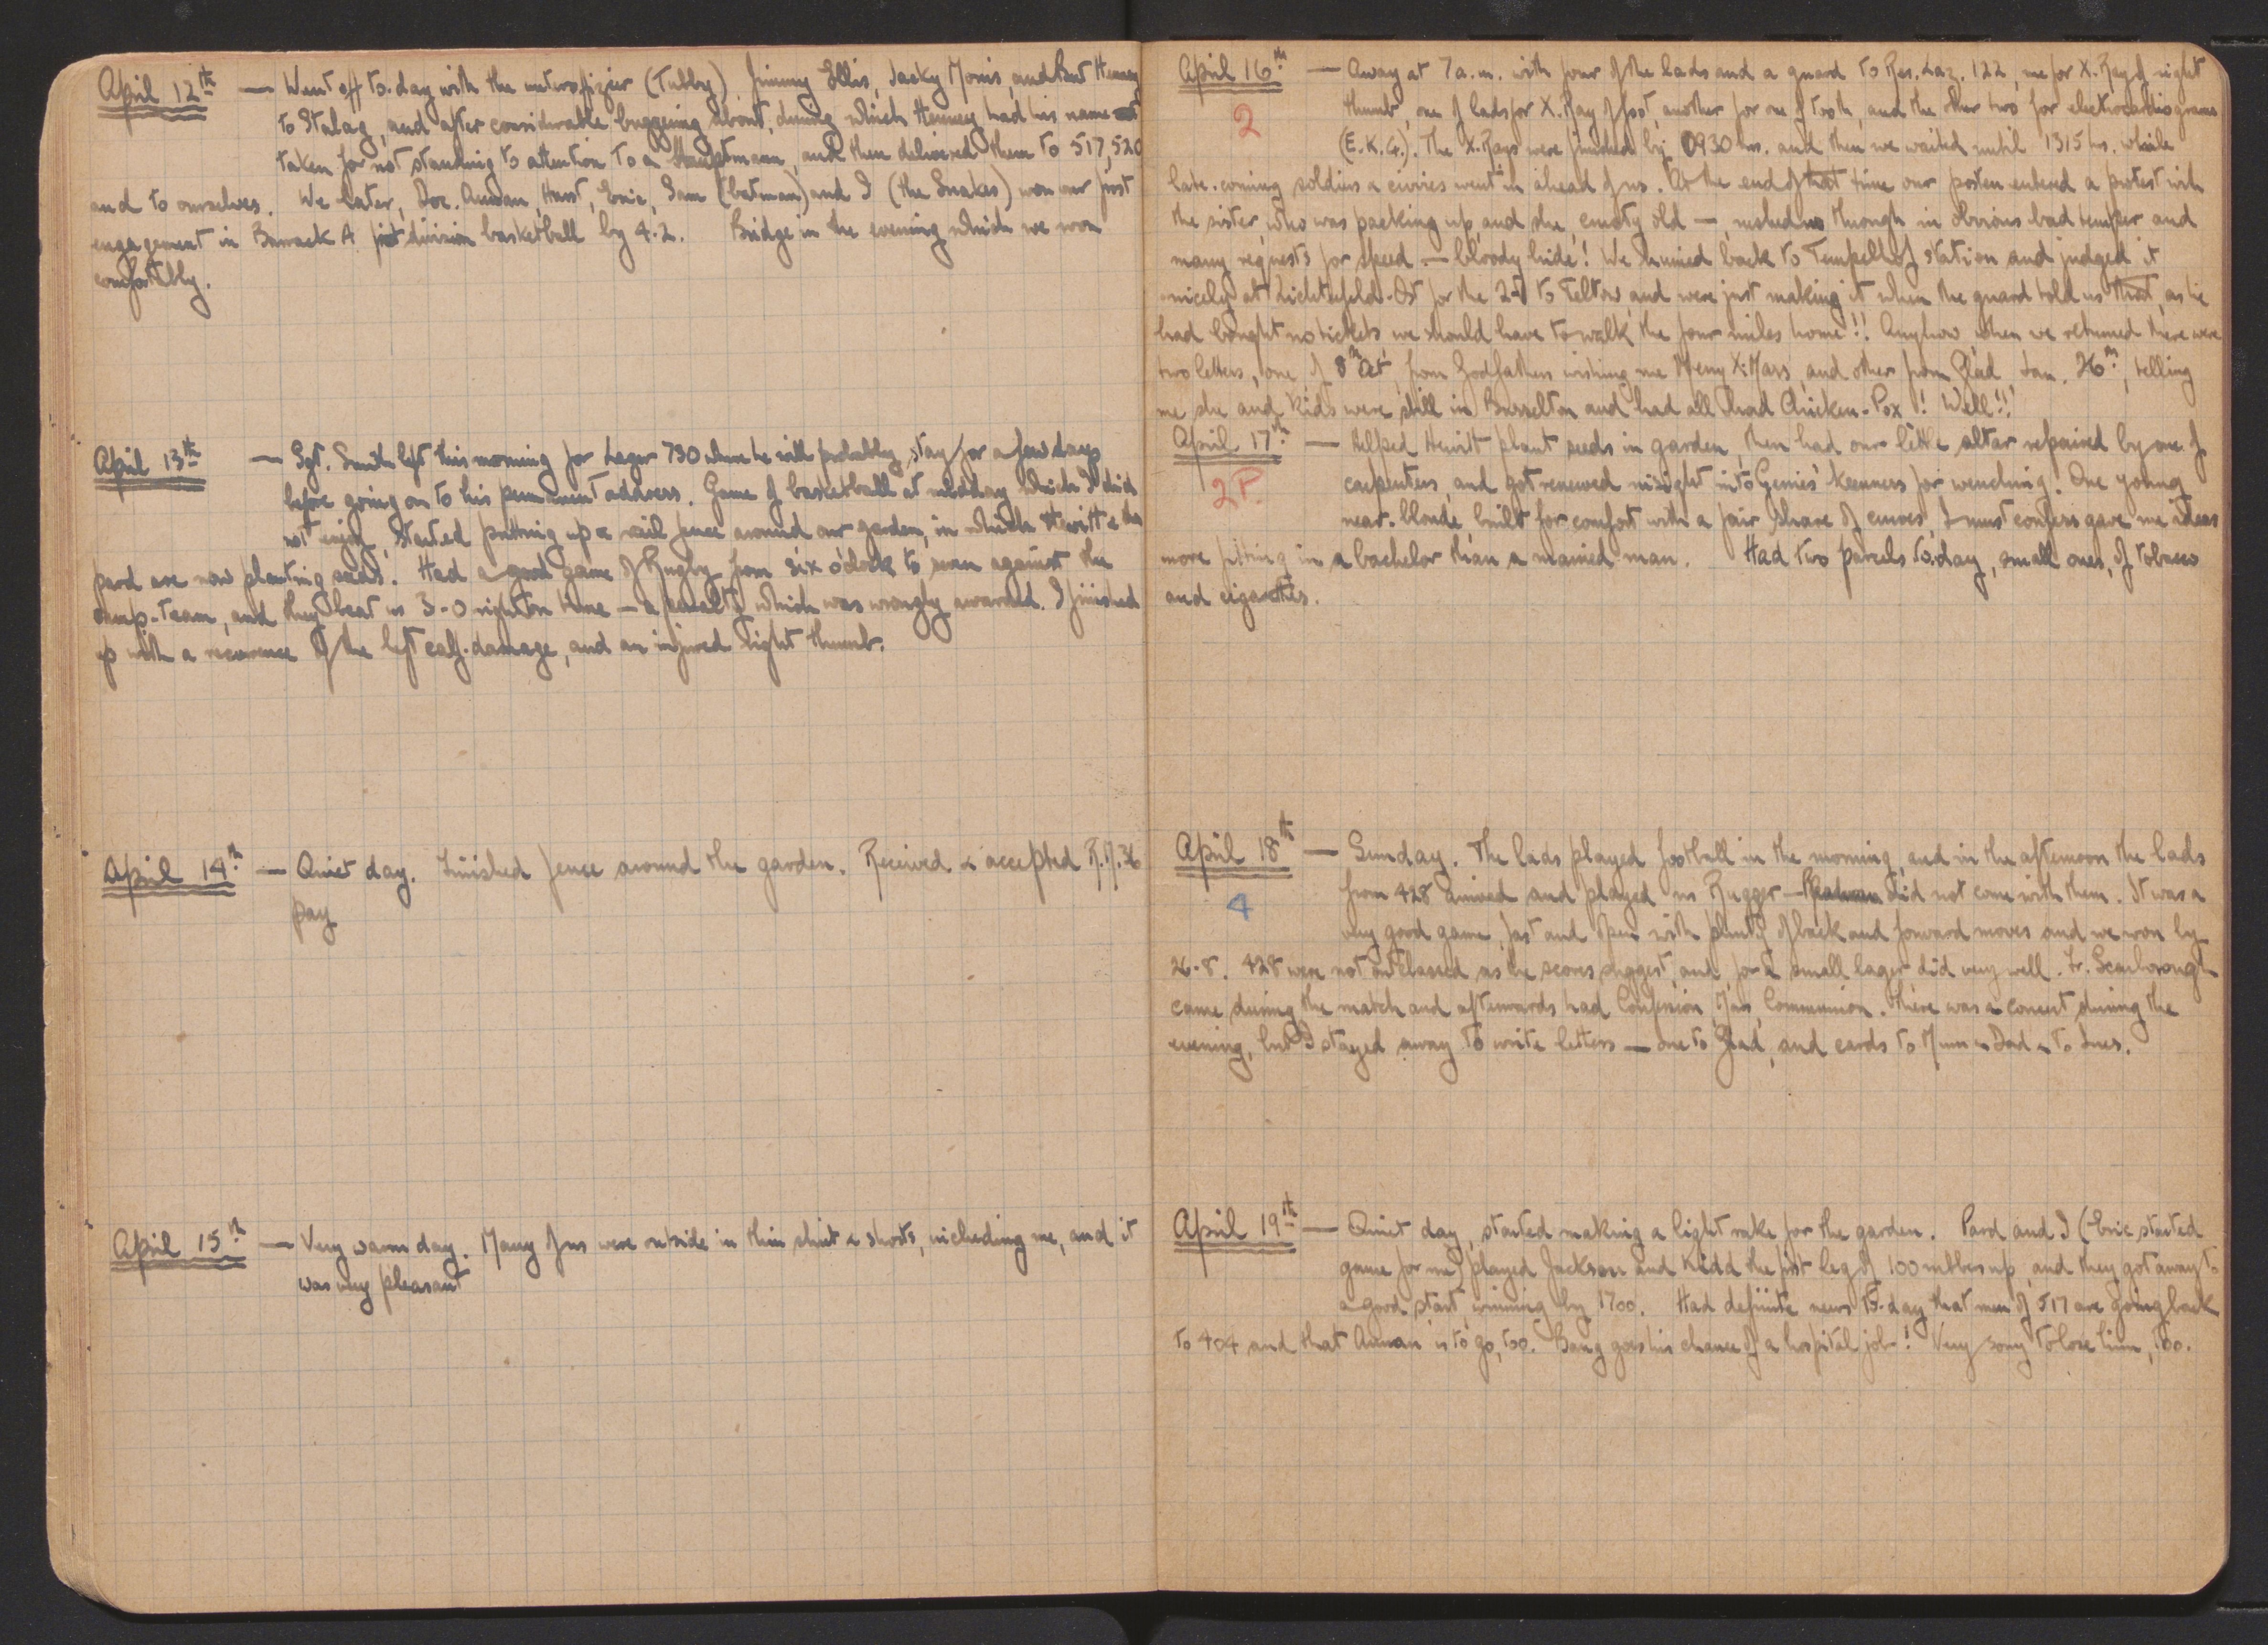 April 12th — Went off to-day with the unteroffizier (Tubby) Jimmy Ellis, Jacky Morris, and Bert Henney
to Stalag, and after considerable buggering about, during which Henney had his name
taken for not standing to attention to a Hauptmann, and then delivered them to 517, 520
and to ourselves. We later, Doc. Auman, Hurst, Eric, Sam (batman) and I (the Snakes) won our first
engagement in Barrack A first division basketball by 4-2. Bridge in the evening which we won
comfortably.
April 13th — Sgt. Smith left this morning for Lager 730 where he will probably stay for a few days
before going on to his permanent address. Game of basketball at midday which I did
not enjoy, started putting up a rail fence around our garden, in which Hewitt & the
pard are now planting seeds. Had a good game of Rugby from six o'clock to seven against the
camp-team, and they beat us 3-0 right on time — a penalty which was wrongly awarded. I finished
up with a recurrence of the left calf-damage, and an injured right thumb.
April 14th — Quiet day. Finished fence around the garden. Received & accepted R.M. 36
pay
April 15th — Very warm day. Many of us were outside in thin shirt & shorts, including me, and it
was very pleasant
April 16th — Away at 7 a.m. with four of the lads and a guard to Res. Laz. 122, me for X-Ray of right
2 thumb, one of lads for X-Ray of foot, another for one of tooth, and the other two for electrocardiograms
(E.K.G.). The X-Rays were finished by 0930 hrs. and then we waited until 1315 hrs. while
late-coming soldiers & civvies went in ahead of us. At the end of that time our posten entered a protest with
the sister, who was packing up, and she, crusty old —, rushed us through in obvious bad temper and
many requests for speed — bloody hide! We hurried back to Tempelhof station and judged it
nicely at Lichterfeld-Ost for the 2-7 to Teltow, and were just making it when the guard told us that, as he
had bought no tickets, we should have to walk the four miles home!! Anyhow when we returned there were
two letters, one of 8th Oct, from Godfathers wishing me Merry X-Mas, and other from Glad, Jan. 26th, telling
me she and kids were still in Busselton and had all had Chicken-Pox! Well!!
April 17th — Helped Hewitt plant seeds in garden, then had our little altar repaired by one of
2P. carpenters, and got renewed insight into Gemies' keenness for wenching! One young
near-blonde built for comfort with a fair share of curves I must confess gave me ideas
more fitting in a bachelor than a married man. Had two parcels to-day, small ones, of tobacco
and cigarettes.
April 18th — Sunday. The lads played football in the morning, and in the afternoon the lads
4 from 428 arrived and played us Rugger — did not come with them. It was a
very good game, fast and open with plenty of back and forward moves and we won by
26-8. 428 were not outclassed as the scores suggest, and for a small lager did very well. Fr. Scarborough
came during the match and afterwards had Confession, Mass, Communion. There was a concert during the
evening, but I stayed away to write letters — one to Glad, and cards to Mum & Dad & to Ines.
April 19th — Quiet day, started making a light rake for the garden. Pard and I (Eric started
game for me) played Jackson and Kidd the first leg of 100 rubbers up, and they got away to
a good start, winning by 1700. Had definite news to-day that men of 517 are going back
to 404 and that Auman is to go, too. Bang goes his chance of a hospital job! Very sorry to lose him, too.